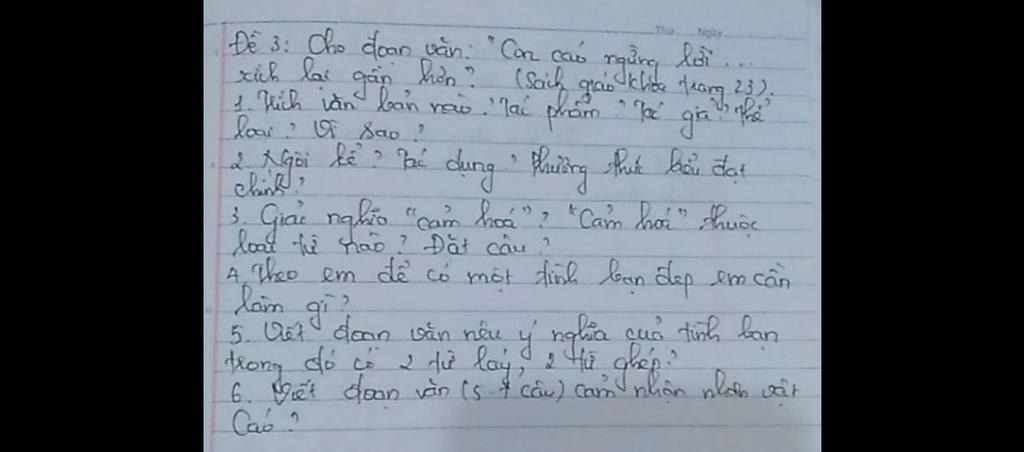 Thứ Ngày
Đề 3: Cho đoạn văn: "Con cáo ngừng lời ...
xích lại gần hơn? (Sách giáo khoa trang 23).
1. Trích văn bản nào? Tác phẩm? Tác giả? Thể
loại? Vì sao?
2. Ngôi kể? Tác dụng? Phương thức biểu đạt
chính?
3. Giải nghĩa "cảm hoá"? "Cảm hoá" thuộc
loại từ nào? Đặt câu?
4. Theo em để có một tình bạn đẹp em cần
làm gì?
5. Viết đoạn văn nêu ý nghĩa của tình bạn
trong đó có 2 từ láy, 2 từ ghép?
6. Viết đoạn văn (5 7 câu) cảm nhận nhân vật
Cáo?